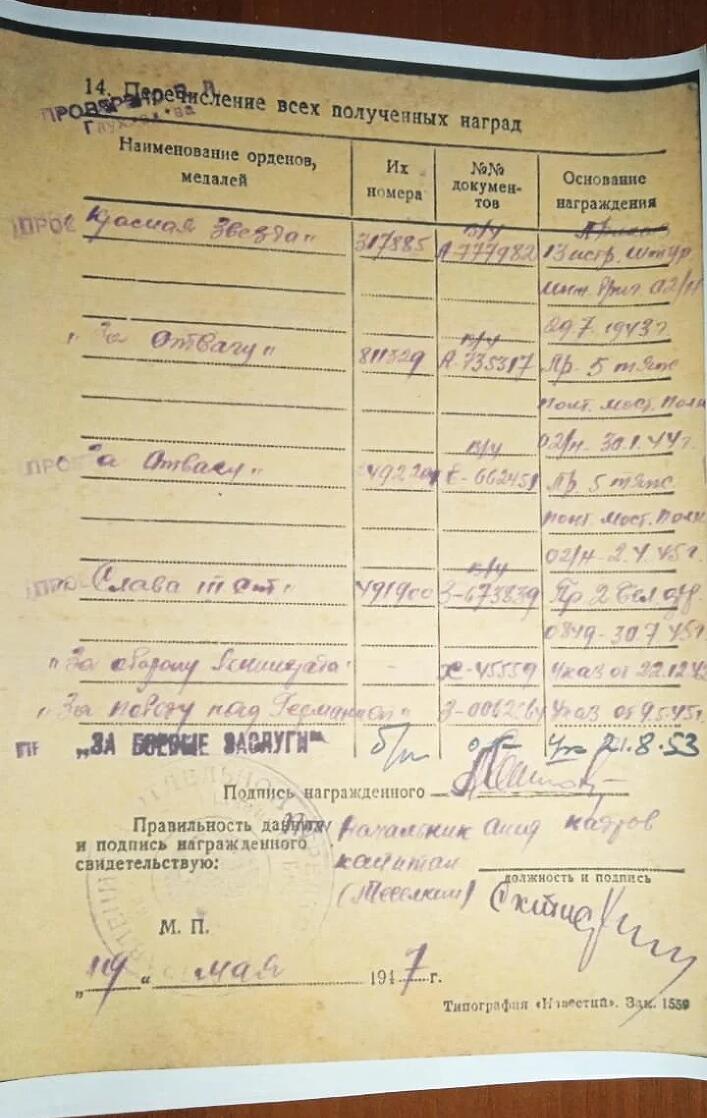 14. Перечисление всех полученных наград
ПРОВЕРЕНО
Наименование орденов, медалей
Их номера
№№ документов
Основание награждения
Красная Звезда"
317885
А-777982
13 истр. штур.
инж. бриг 02/н
од 7. 1943 г.
"За Отвагу"
811329
А-735317
Пр. 5 тяж
понт. мост. полк
02/н- 30.1.44 г.
За Отвагу"
Е-662451
Пр. 5 тяж
понт. мост. полк
02/н- 2.4.45 г.
Слава III ст"
491900
З-673839
Пр 2 Бел
0849-30.7 45 г
"За оборону Ленинграда"
-
Х-45559
Указ от 22.12.42
"За победу над Германией"
Указ от 9.5.45 г.
„ЗА БОЕВЫЕ ЗАСЛУГИ"
б/н
Ук 21.8.53
Подпись награжденного
Правильность данных
и подпись награжденного
свидетельствую:
Начальник
капитан
должность и подпись
М. П.
„19" мая 1947 г.
Типография «Известий». Зак. 1559